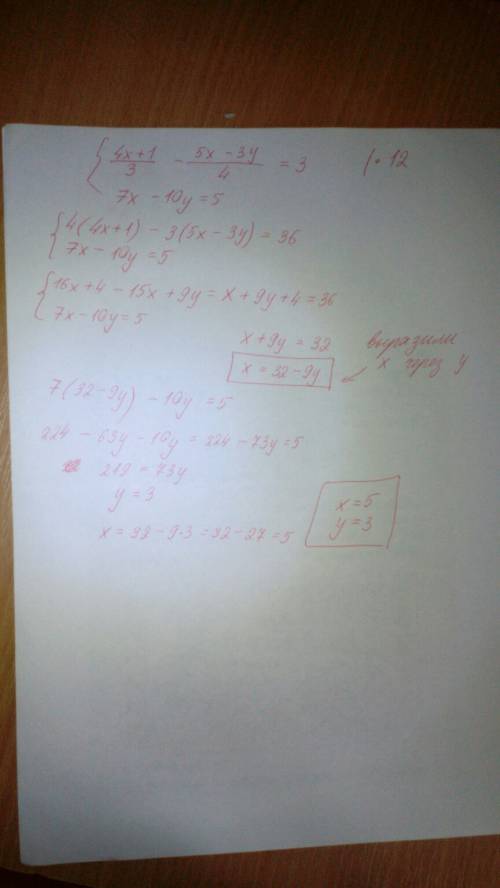 { (4x+1)/3 - (5x-3y)/4 = 3 | · 12
7x - 10y = 5
{ 4(4x+1) - 3(5x-3y) = 36
7x - 10y = 5
{ 16x+4 - 15x+9y = x+9y+4 = 36
7x - 10y = 5
x+9y = 32
x = 32-9y
выразили
x через y
7(32-9y) - 10y = 5
224 - 63y - 10y = 224 - 73y = 5
219 = 73y
y = 3
x = 32 - 9·3 = 32 - 27 = 5
x = 5
y = 3